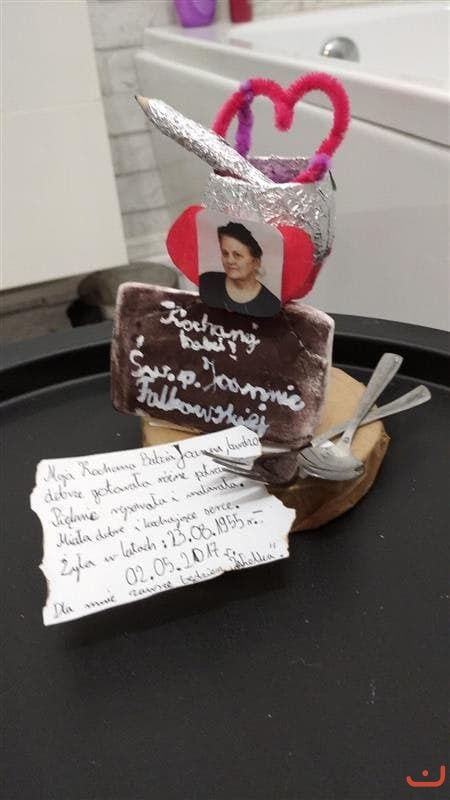 Kochanej
babci
Św. p. Joannie
Falkowskiej
Moja Kochana Babcia Joanna bardzo
dobrze gotowała różne potrawy.
Pięknie rysowała i malowała.
Miała dobre i kochające serce.
Żyła w latach: 23.08.1955 r. –
02.05.2017 r.
Dla mnie zawsze będziesz "Wielka".